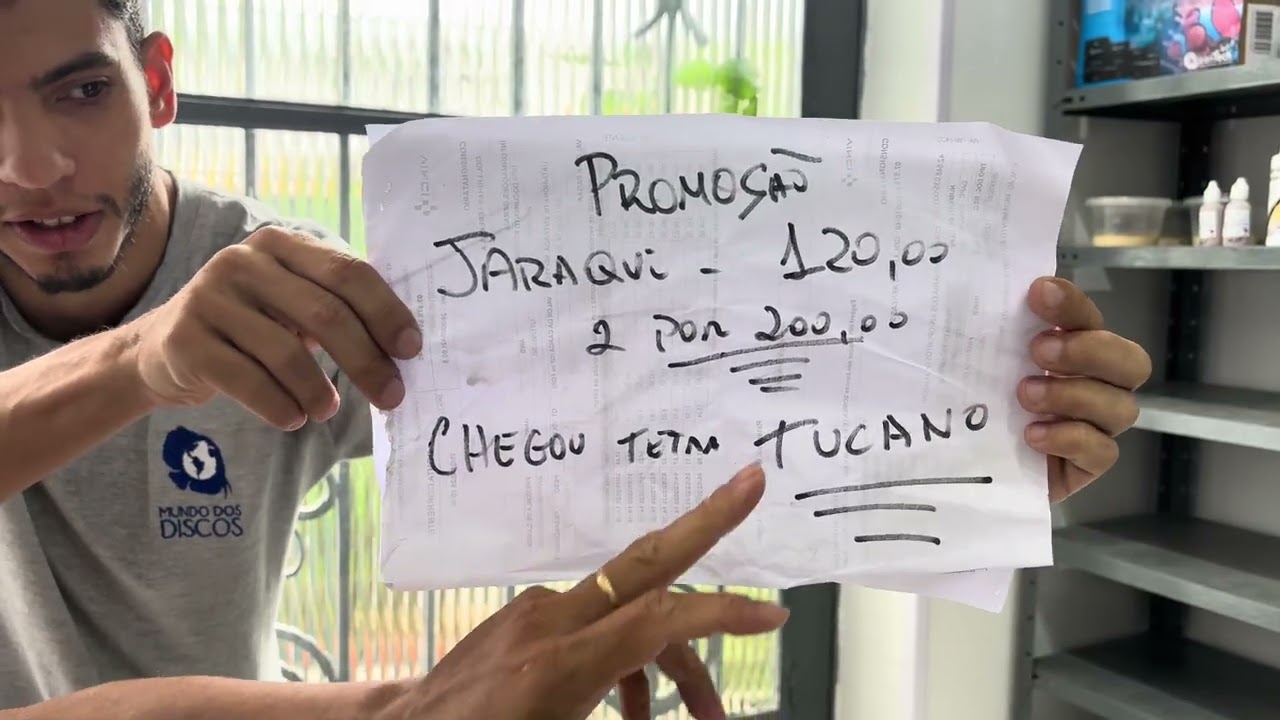 PROMOSÇÃO
JARAQUi - 120,00
2 POR 200,00
CHEGOU TETRA TUCANO
MUNDO DOS
DISCOS